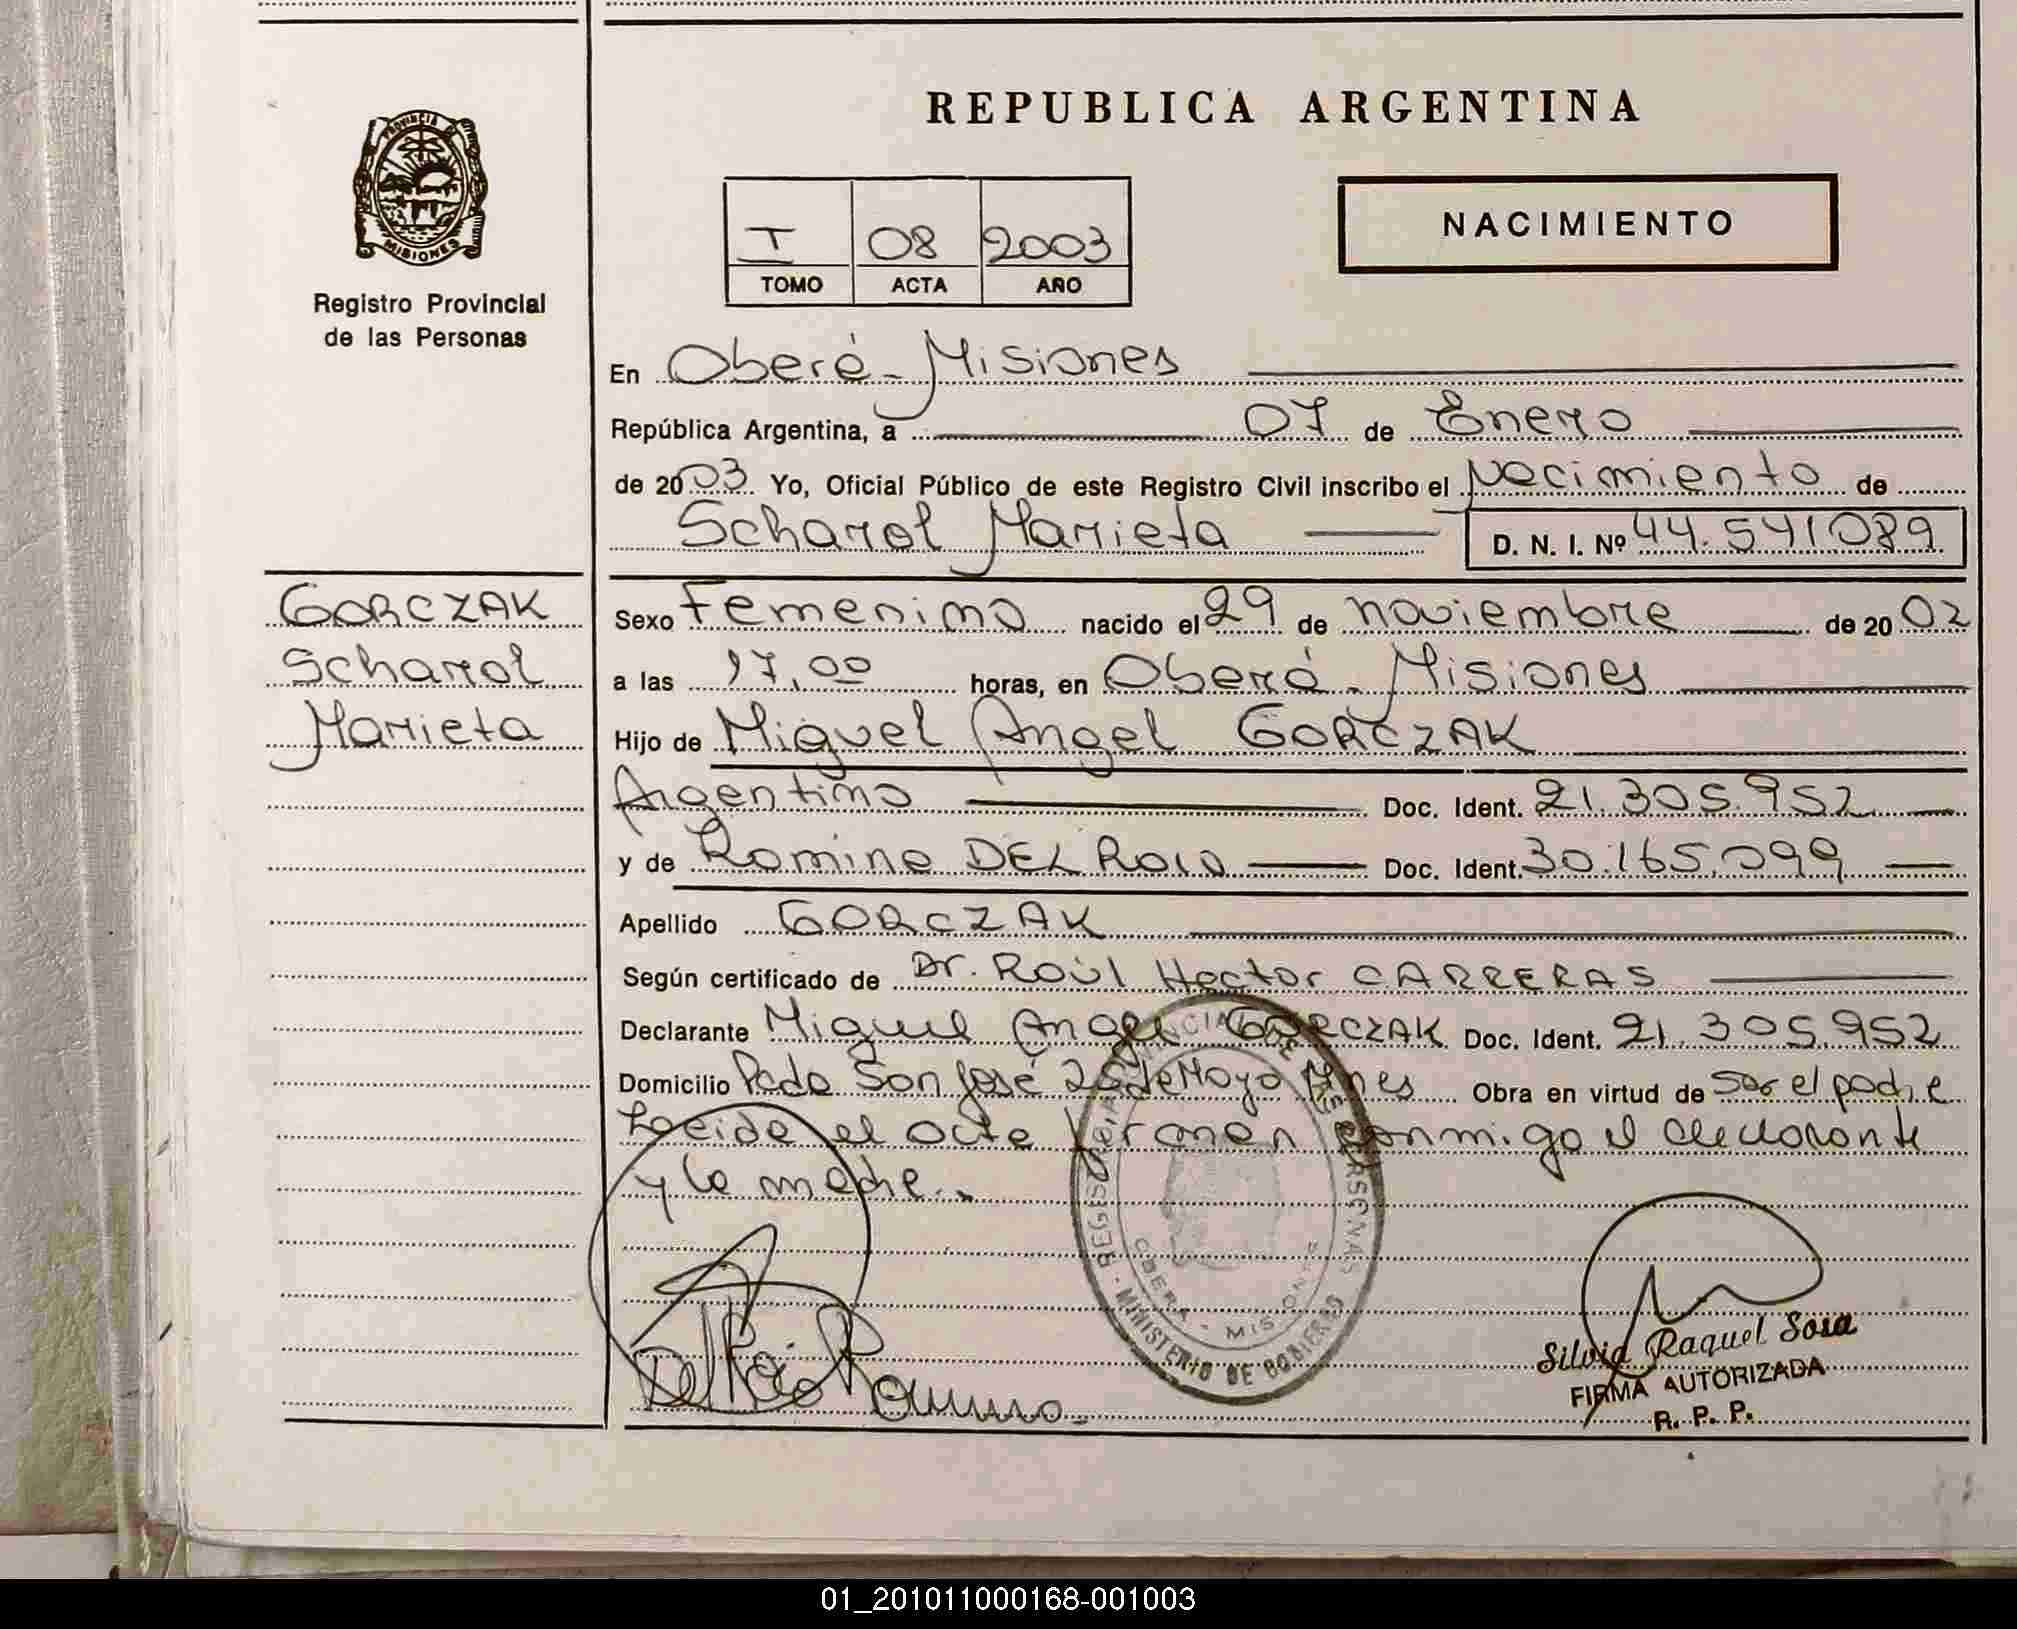 REPUBLICA ARGENTINA
PROVINCIA DE
MISIONES
Registro Provincial
de las Personas
I 08 2003
TOMO ACTA AÑO
NACIMIENTO
En Oberá - Misiones
República Argentina, a 07 de Enero
de 2003 Yo, Oficial Público de este Registro Civil inscribo el Nacimiento de
Scharol Marieta D. N. I. Nº 44.541089
GORCZAK
Scharol
Marieta
Sexo Femenino nacido el 29 de noviembre de 2002
a las 17,00 horas, en Oberá - Misiones
Hijo de Miguel Angel GORCZAK
Argentino Doc. Ident. 21.305.952
y de Romina DEL ROIO Doc. Ident. 30.165.099
Apellido GORCZAK
Según certificado de Dr. Raúl Hector CARRERAS
Declarante Miguel Angel GORCZAK Doc. Ident. 21.305.952
Domicilio Pcda San José 25 de Mayo Mnes Obra en virtud de ser el padre
Leida el acta firman conmigo el declarante
y la madre.
DE LAS PERSONAS
OBERA - MISIONES
MINISTERIO DE GOBIERNO
Del Roio Romina
Silvia Raquel Sosa
FIRMA AUTORIZADA
R. P. P.
01_201011000168-001003